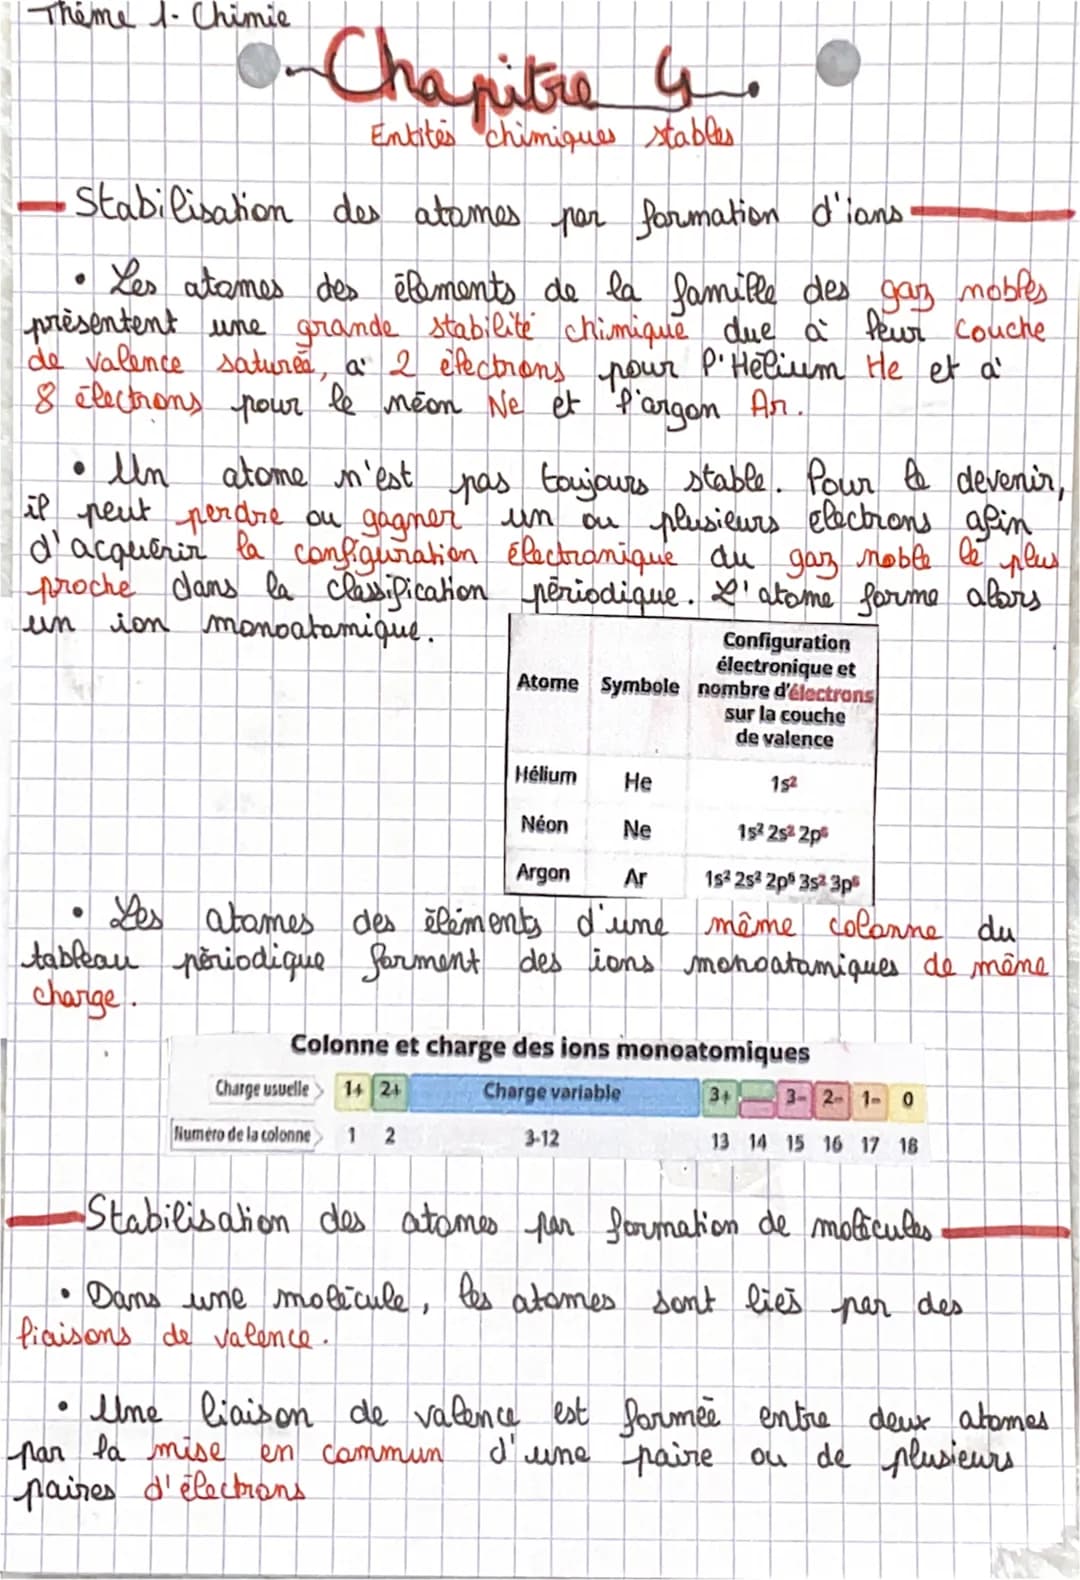 Thème 1 - Chimie
Chapitre 4
Entités chimiques stables
Stabilisation des atomes par formation d'ions
• Les atomes des éléments de la famille des gaz nobles
présentent une grande stabilité chimique due à leur couche
de valence saturée, à 2 électrons pour l'Hélium He et à
8 électrons pour le néon Ne et l'argon Ar.
• Un atome n'est pas toujours stable. Pour le devenir,
il peut perdre ou gagner un ou plusieurs électrons afin
d'acquérir la configuration électronique du gaz noble le plus
proche dans la classification périodique. L'atome forme alors
un ion monoatomique.
Atome Symbole Configuration
électronique et
nombre d'électrons
sur la couche
de valence
Hélium He 1s²
Néon Ne 1s² 2s² 2p⁶
Argon Ar 1s² 2s² 2p⁶ 3s² 3p⁶
• Les atomes des éléments d'une même colonne du
tableau périodique forment des ions monoatomiques de même
charge.
Colonne et charge des ions monoatomiques
Charge usuelle 1+ 2+ Charge variable 3+ 3- 2- 1- 0
Numéro de la colonne 1 2 3-12 13 14 15 16 17 18
Stabilisation des atomes par formation de molécules
• Dans une molécule, les atomes sont liés par des
liaisons de valence.
• Une liaison de valence est formée entre deux atomes
par la mise en commun d'une paire ou de plusieurs
paires d'électrons